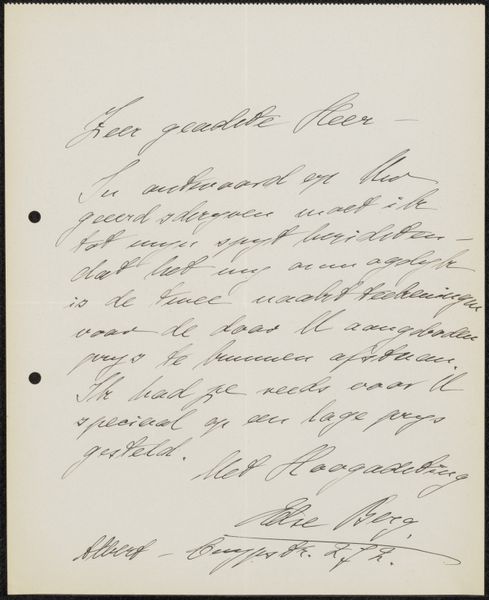 Zeer geachte Heer –
In antwoord op Uw
geeerd schryven moet ik
tot myn spyt berichten –
dat het my onmogelyk
is de twee naaktteekeningen
voor de door U aangeboden
prys te kunnen afstaan.
Ik had ze reeds voor U
speciaal op een lage prys
gesteld.
Met Hoogachting
Else Berg.
Albert – Cuypstr. 272.